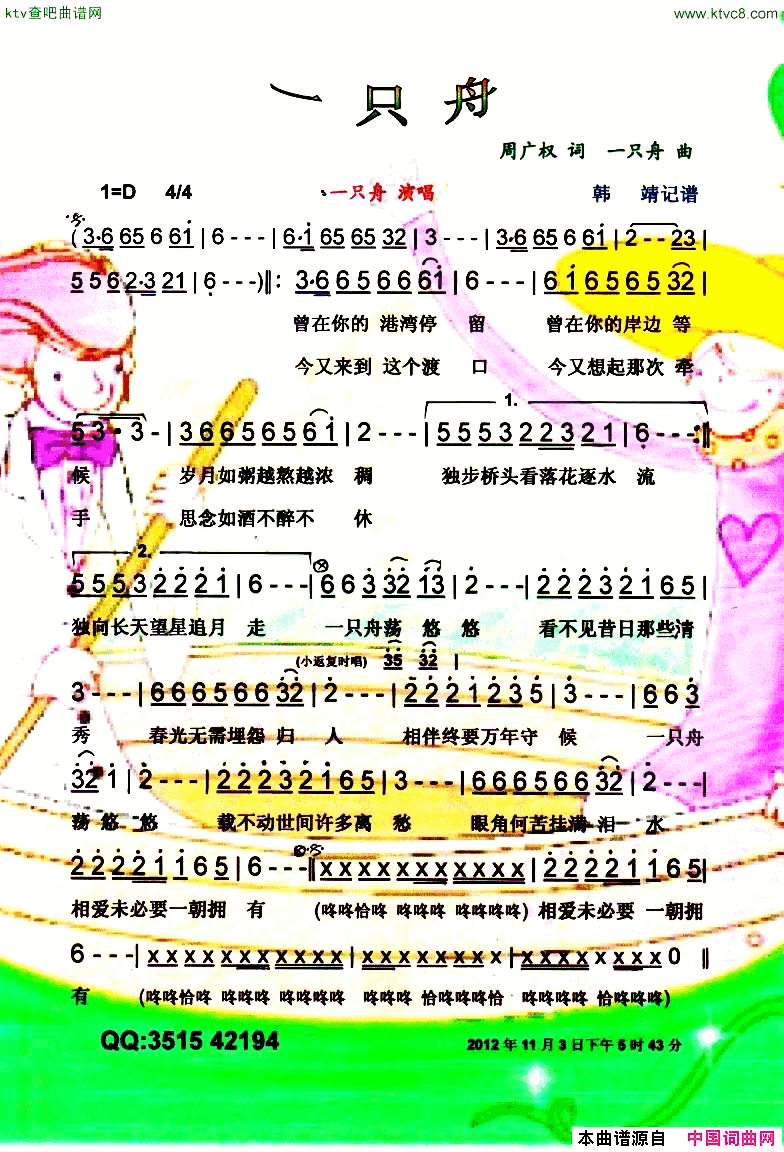 ktv查吧曲谱网 www.ktvc8.com
一只舟
周广权 词 一只舟 曲
1=D 4/4 一只舟 演唱 韩 靖记谱
(3·6 65 6 61 | 6 - - - | 6·1 65 65 32 | 3 - - - | 3·6 65 6 61 | 2 - - 23 |
5 5 6 2·3 21 | 6 - - -)‖: 3·6 6 5 6 6 61 | 6 - - - | 61 65 65 32 |
曾在你的 港湾停 留 曾在你的岸边 等
今又来到 这个渡 口 今又想起那次 牵
1.
5 3·3 - | 3 6 6 5 6 5 6 1 | 2 - - - | 5 5 5 3 2 2 3 2 1 | 6 - - - :‖
候 岁月如粥越熬越浓 稠 独步桥头看落花逐水 流
手 思念如酒不醉不 休
2.
5 5 5 3 2 2 2 1 | 6 - - - | 6 6 3 32 13 | 2 - - - | 2 2 2 3 2 1 6 5 |
独向长天望星追月 走 一只舟荡 悠 悠 看不见昔日那些清
(小返复时唱) 35 32 |
3 - - - | 6 6 6 5 6 6 32 | 2 - - - | 2 2 2 1 2 3 5 | 3 - - - | 6 6 3
秀 春光无需埋怨 归 人 相伴终要万年守 候 一只舟
32 1 | 2 - - - | 2 2 2 3 2 1 6 5 | 3 - - - | 6 6 6 5 6 6 32 | 2 - - - |
荡 悠 悠 载不动世间许多离 愁 眼角何苦挂满 泪 水
2 2 2 2 1 1 6 5 | 6 - - -‖x x x x x x x x x x x | 2 2 2 2 1 1 6 5 |
相爱未必要一朝拥 有 (咚咚恰咚 咚咚咚 咚咚咚咚) 相爱未必要 一朝拥
6 - - - | x x x x x x x x x x x | x x x x x x x x | x x x x x x x x 0 ‖
有 (咚咚恰咚 咚咚咚 咚咚咚咚 咚咚咚 恰咚咚咚恰 咚咚咚咚 恰咚咚咚)
QQ:3515 42194 2012 年 11 月 3 日下午 5 时 43 分
本曲谱源自 中国词曲网